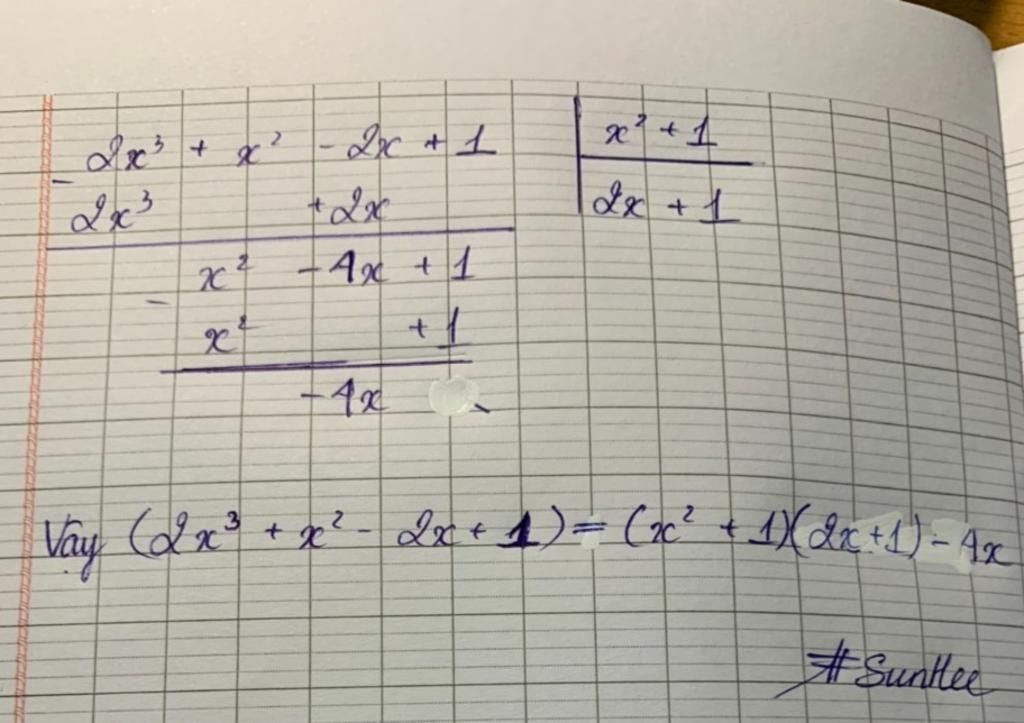 2x³ + x² - 2x + 1 | x² + 1
- 2x³ + 2x | 2x + 1
x² - 4x + 1
- x² + 1
- 4x
Vậy (2x³ + x² - 2x + 1) = (x² + 1)(2x+1) - 4x
#SunHee